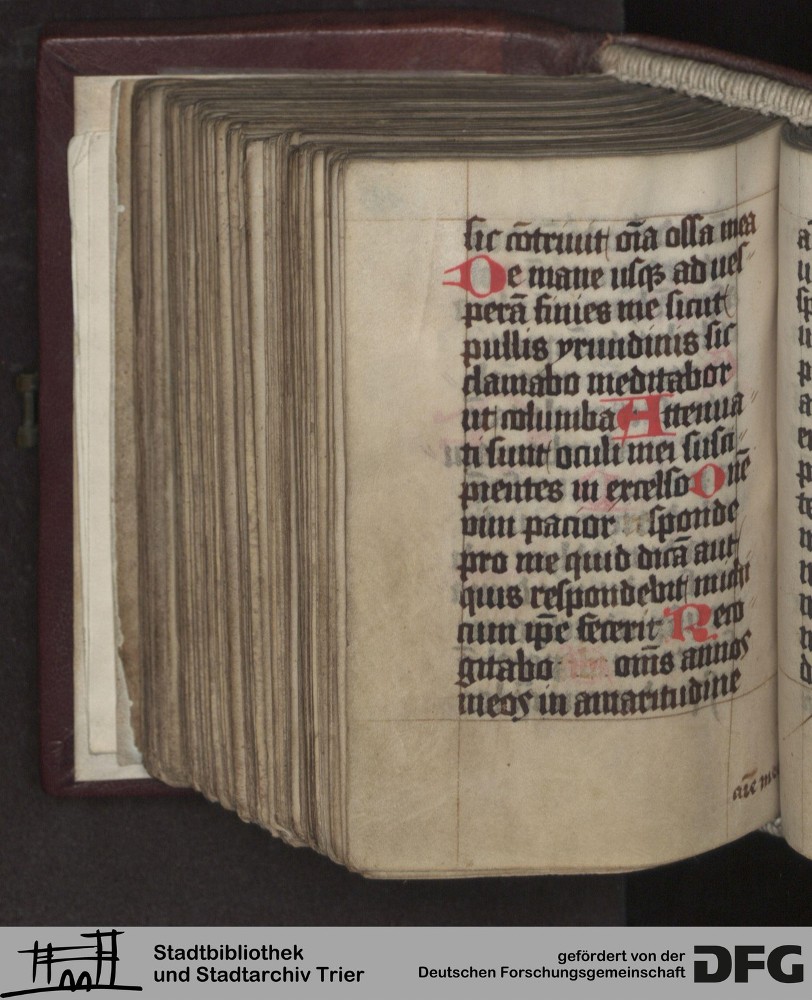 sic cōtriuit oīa ossa mea
De mane usqꝫ ad ues
perā finies me sicut
pullis yrundinis sic
clamabo meditabor
ut columba Attenua
ti sunt oculi mei susci
pientes in excelso Dn̄e
vim pacior sponde
pro me quid dicā aut
quis respondebit michi
cum ip̄e fecerit Reco
gitabo om̄s annos
meos in amaritudine
aīe me
Stadtbibliothek
und Stadtarchiv Trier
gefördert von der
Deutschen Forschungsgemeinschaft
DFG